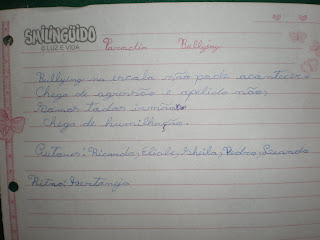 SMILINGÜIDO
O LUZ E VIDA
Paródia Bullying
Bullying na escola não pode acontecer.
Chega de agressão e apelido não,
Somos todos irmãos
Chega de humilhação.
Autores: Ricardo, Eliale, Sheila, Pedro, Leandro
Ritmo: Sertanejo